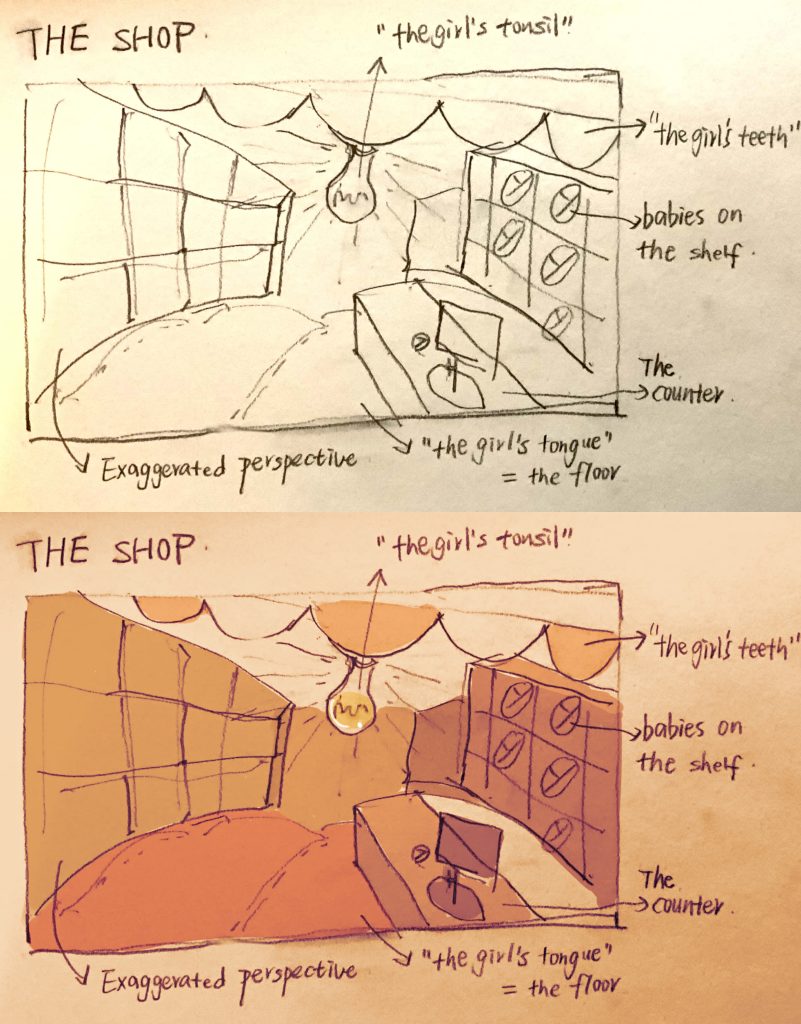 THE SHOP.
"the girl's tonsil"
"the girl's teeth"
babies on
the shelf.
The
counter.
"the girl's tongue"
= the floor
Exaggerated perspective
THE SHOP.
"the girl's tonsil"
"the girl's teeth"
babies on
the shelf.
The
counter.
"the girl's tongue"
= the floor
Exaggerated perspective